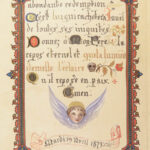 abondante rédemption
C'est lui qui rachètera Israël
de toutes ses iniquités
Donnez, ô mon Père le
repos éternel et que la lumière
éternelle l'éclaire
Qu'il repose en paix.
Amen.
Mardi 29 Avril 1873